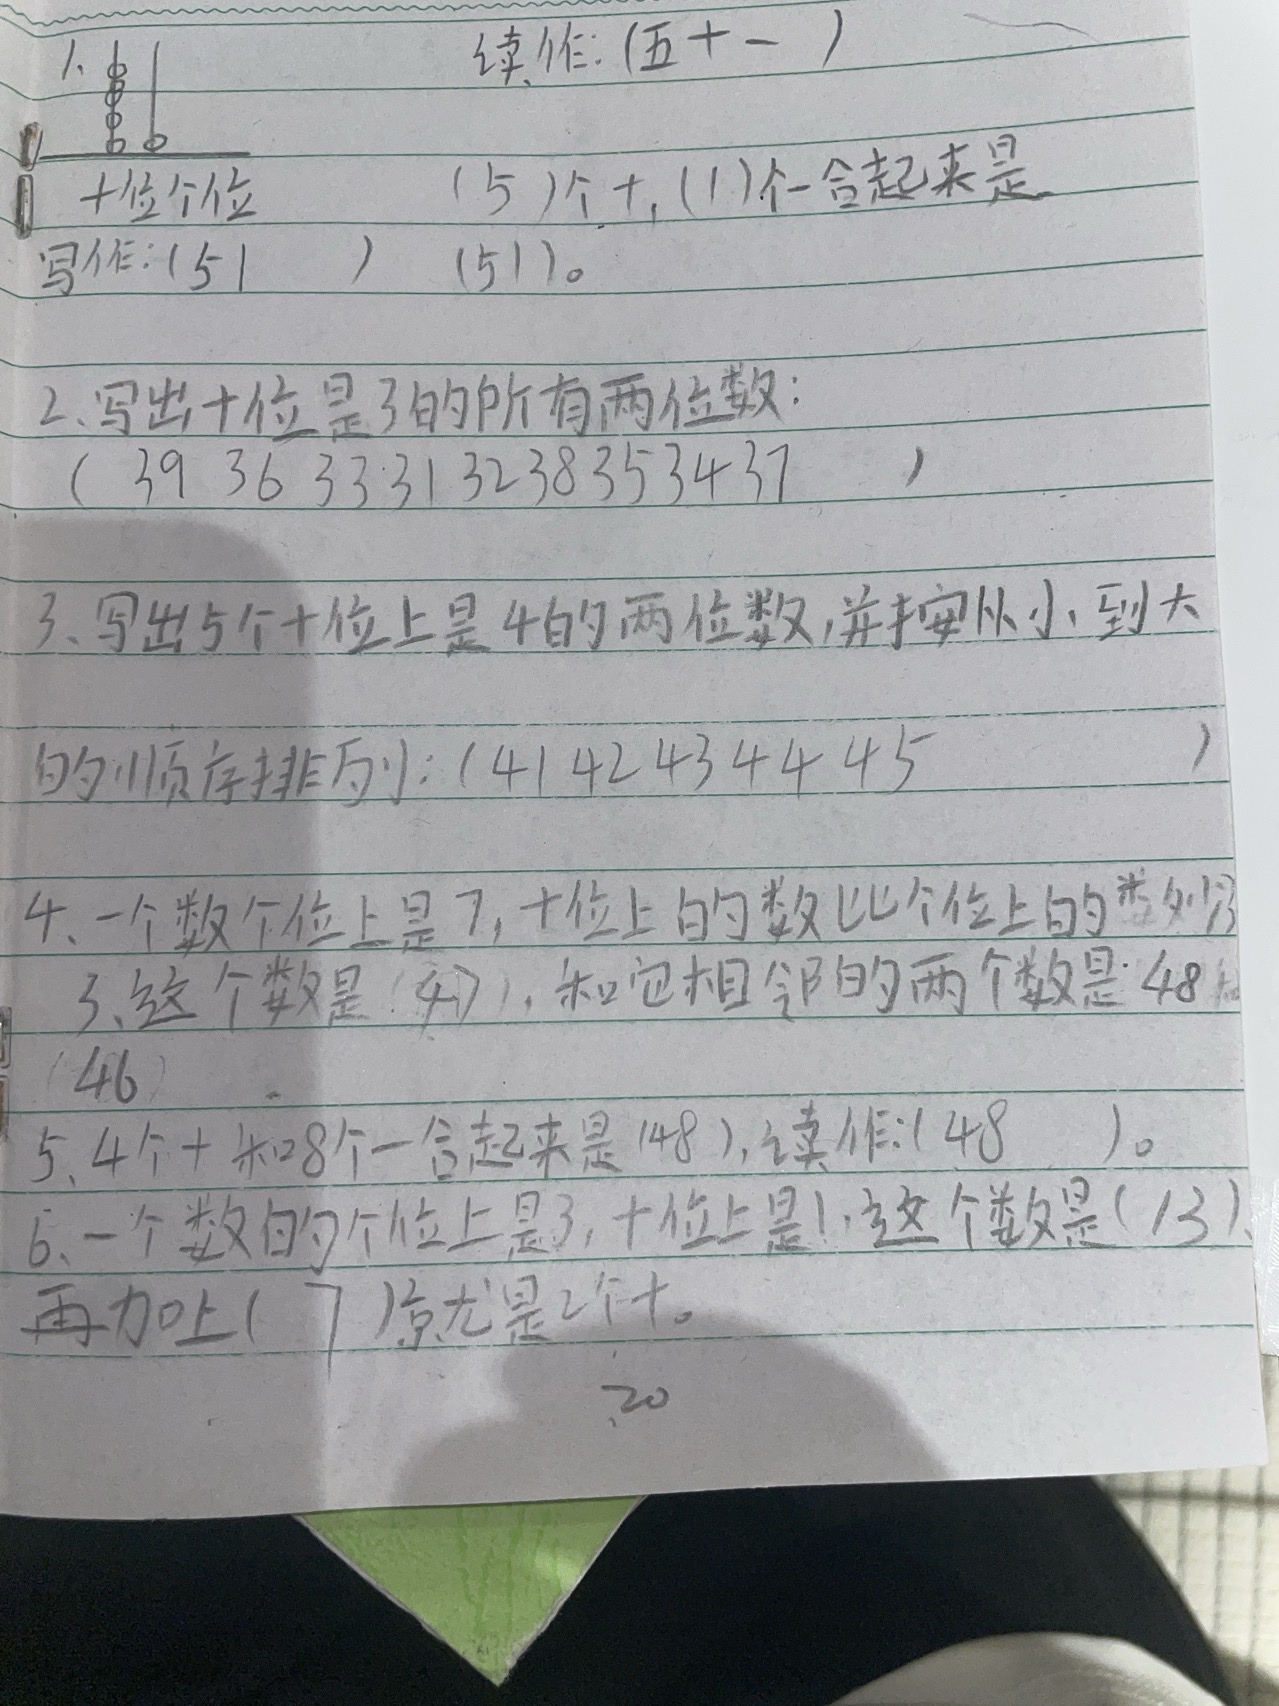 1. 读作:(五十一 )
十位个位 (5)个十,(1)个一合起来是
写作:(51 ) (51)。
2、写出十位是3的所有两位数:
( 39 36 33 31 32 38 35 34 37 )
3、写出5个十位上是4的两位数,并按从小到大
的顺序排列:(41 42 43 44 45 )
4、一个数个位上是7,十位上的数比个位上的数少
3、这个数是(47),和它相邻的两个数是 48
(46)
5、4个十和8个一合起来是(48),读作:(48 )。
6、一个数的个位上是3,十位上是1,这个数是(13)、
再加上( 7 )就是2个十。
20